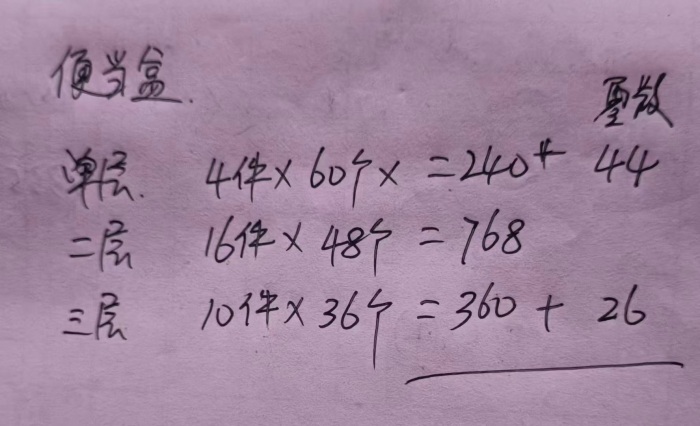 便当盒.
零散
单层. 4件×60个× =240+ 44
二层 16件×48个 =768
三层 10件×36个 =360 + 26